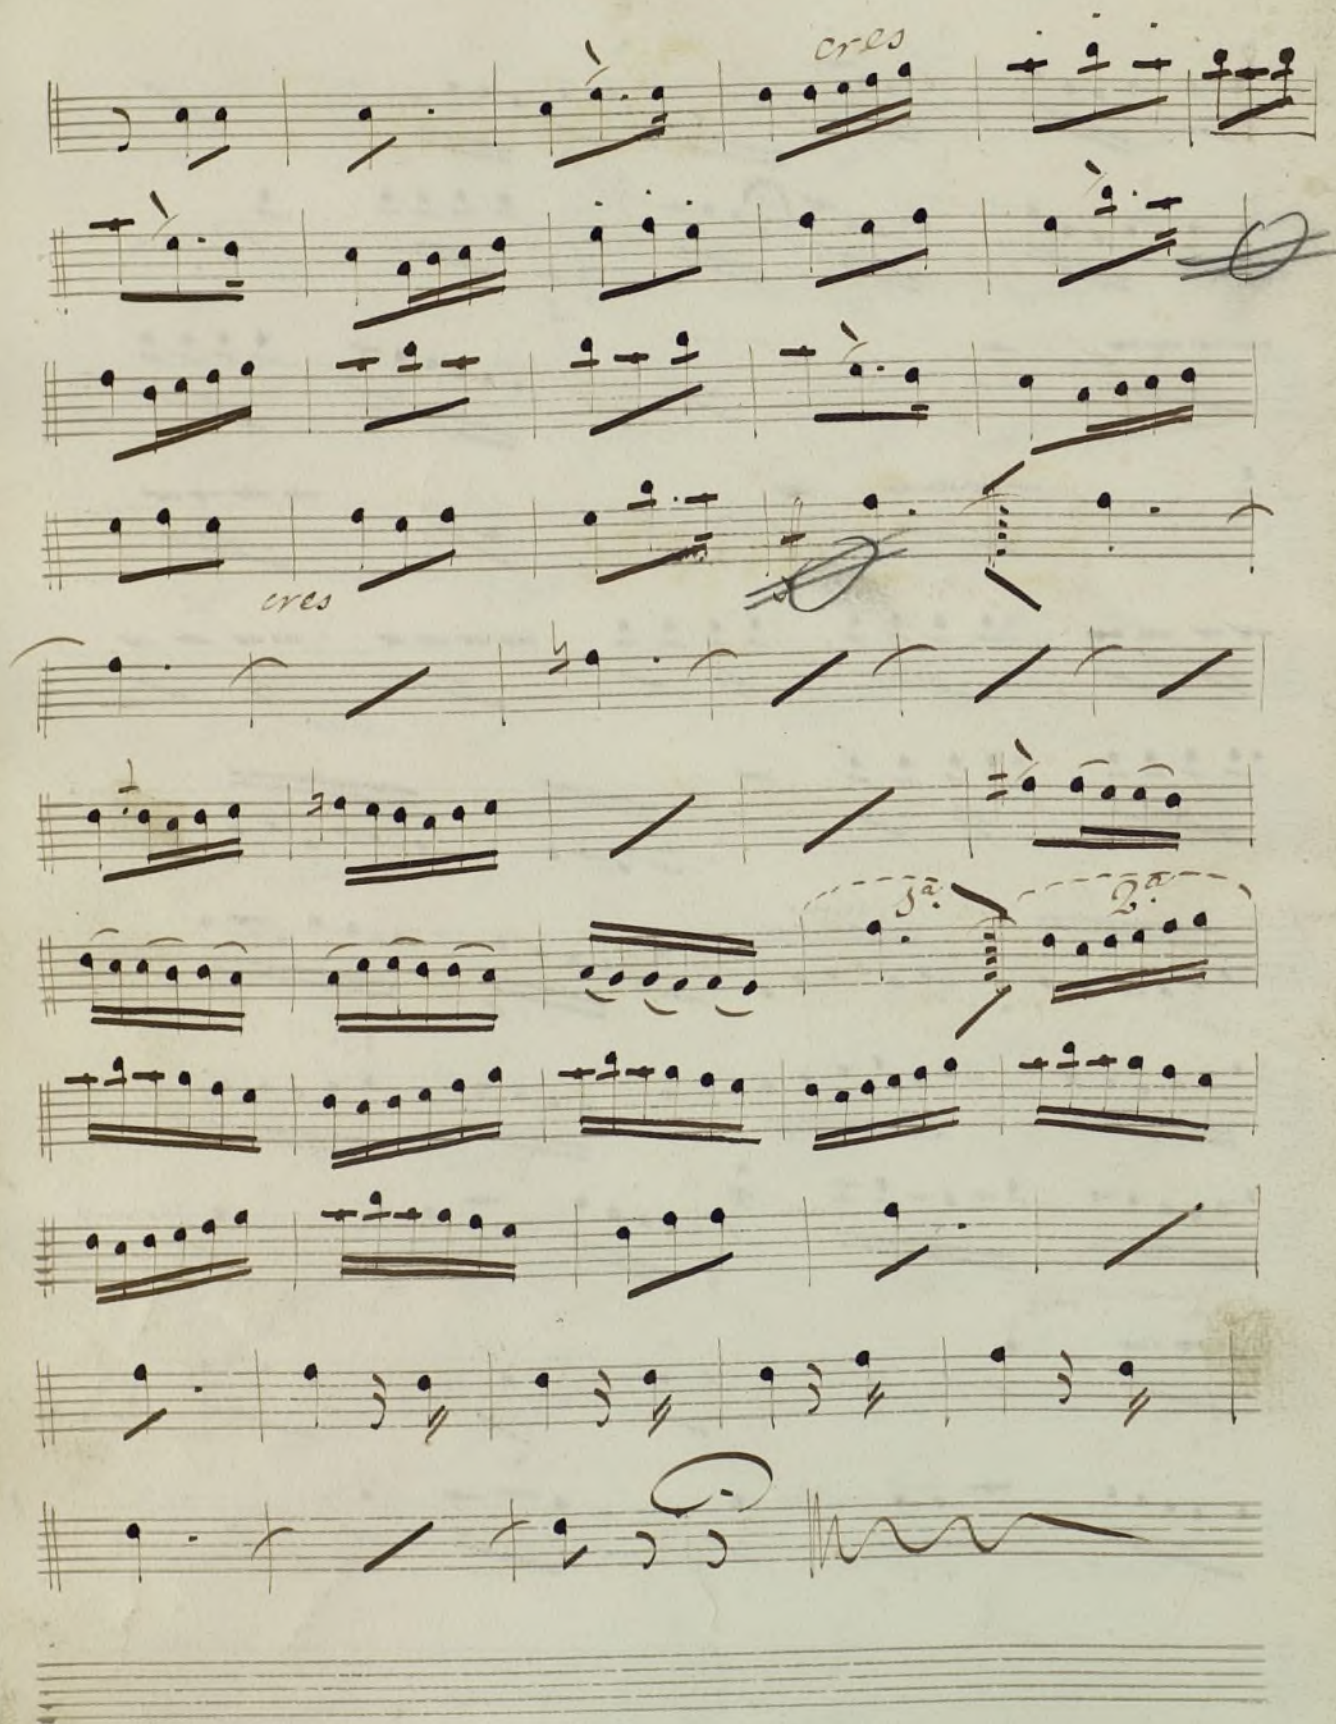 cres
cres
1ª. 2.ª